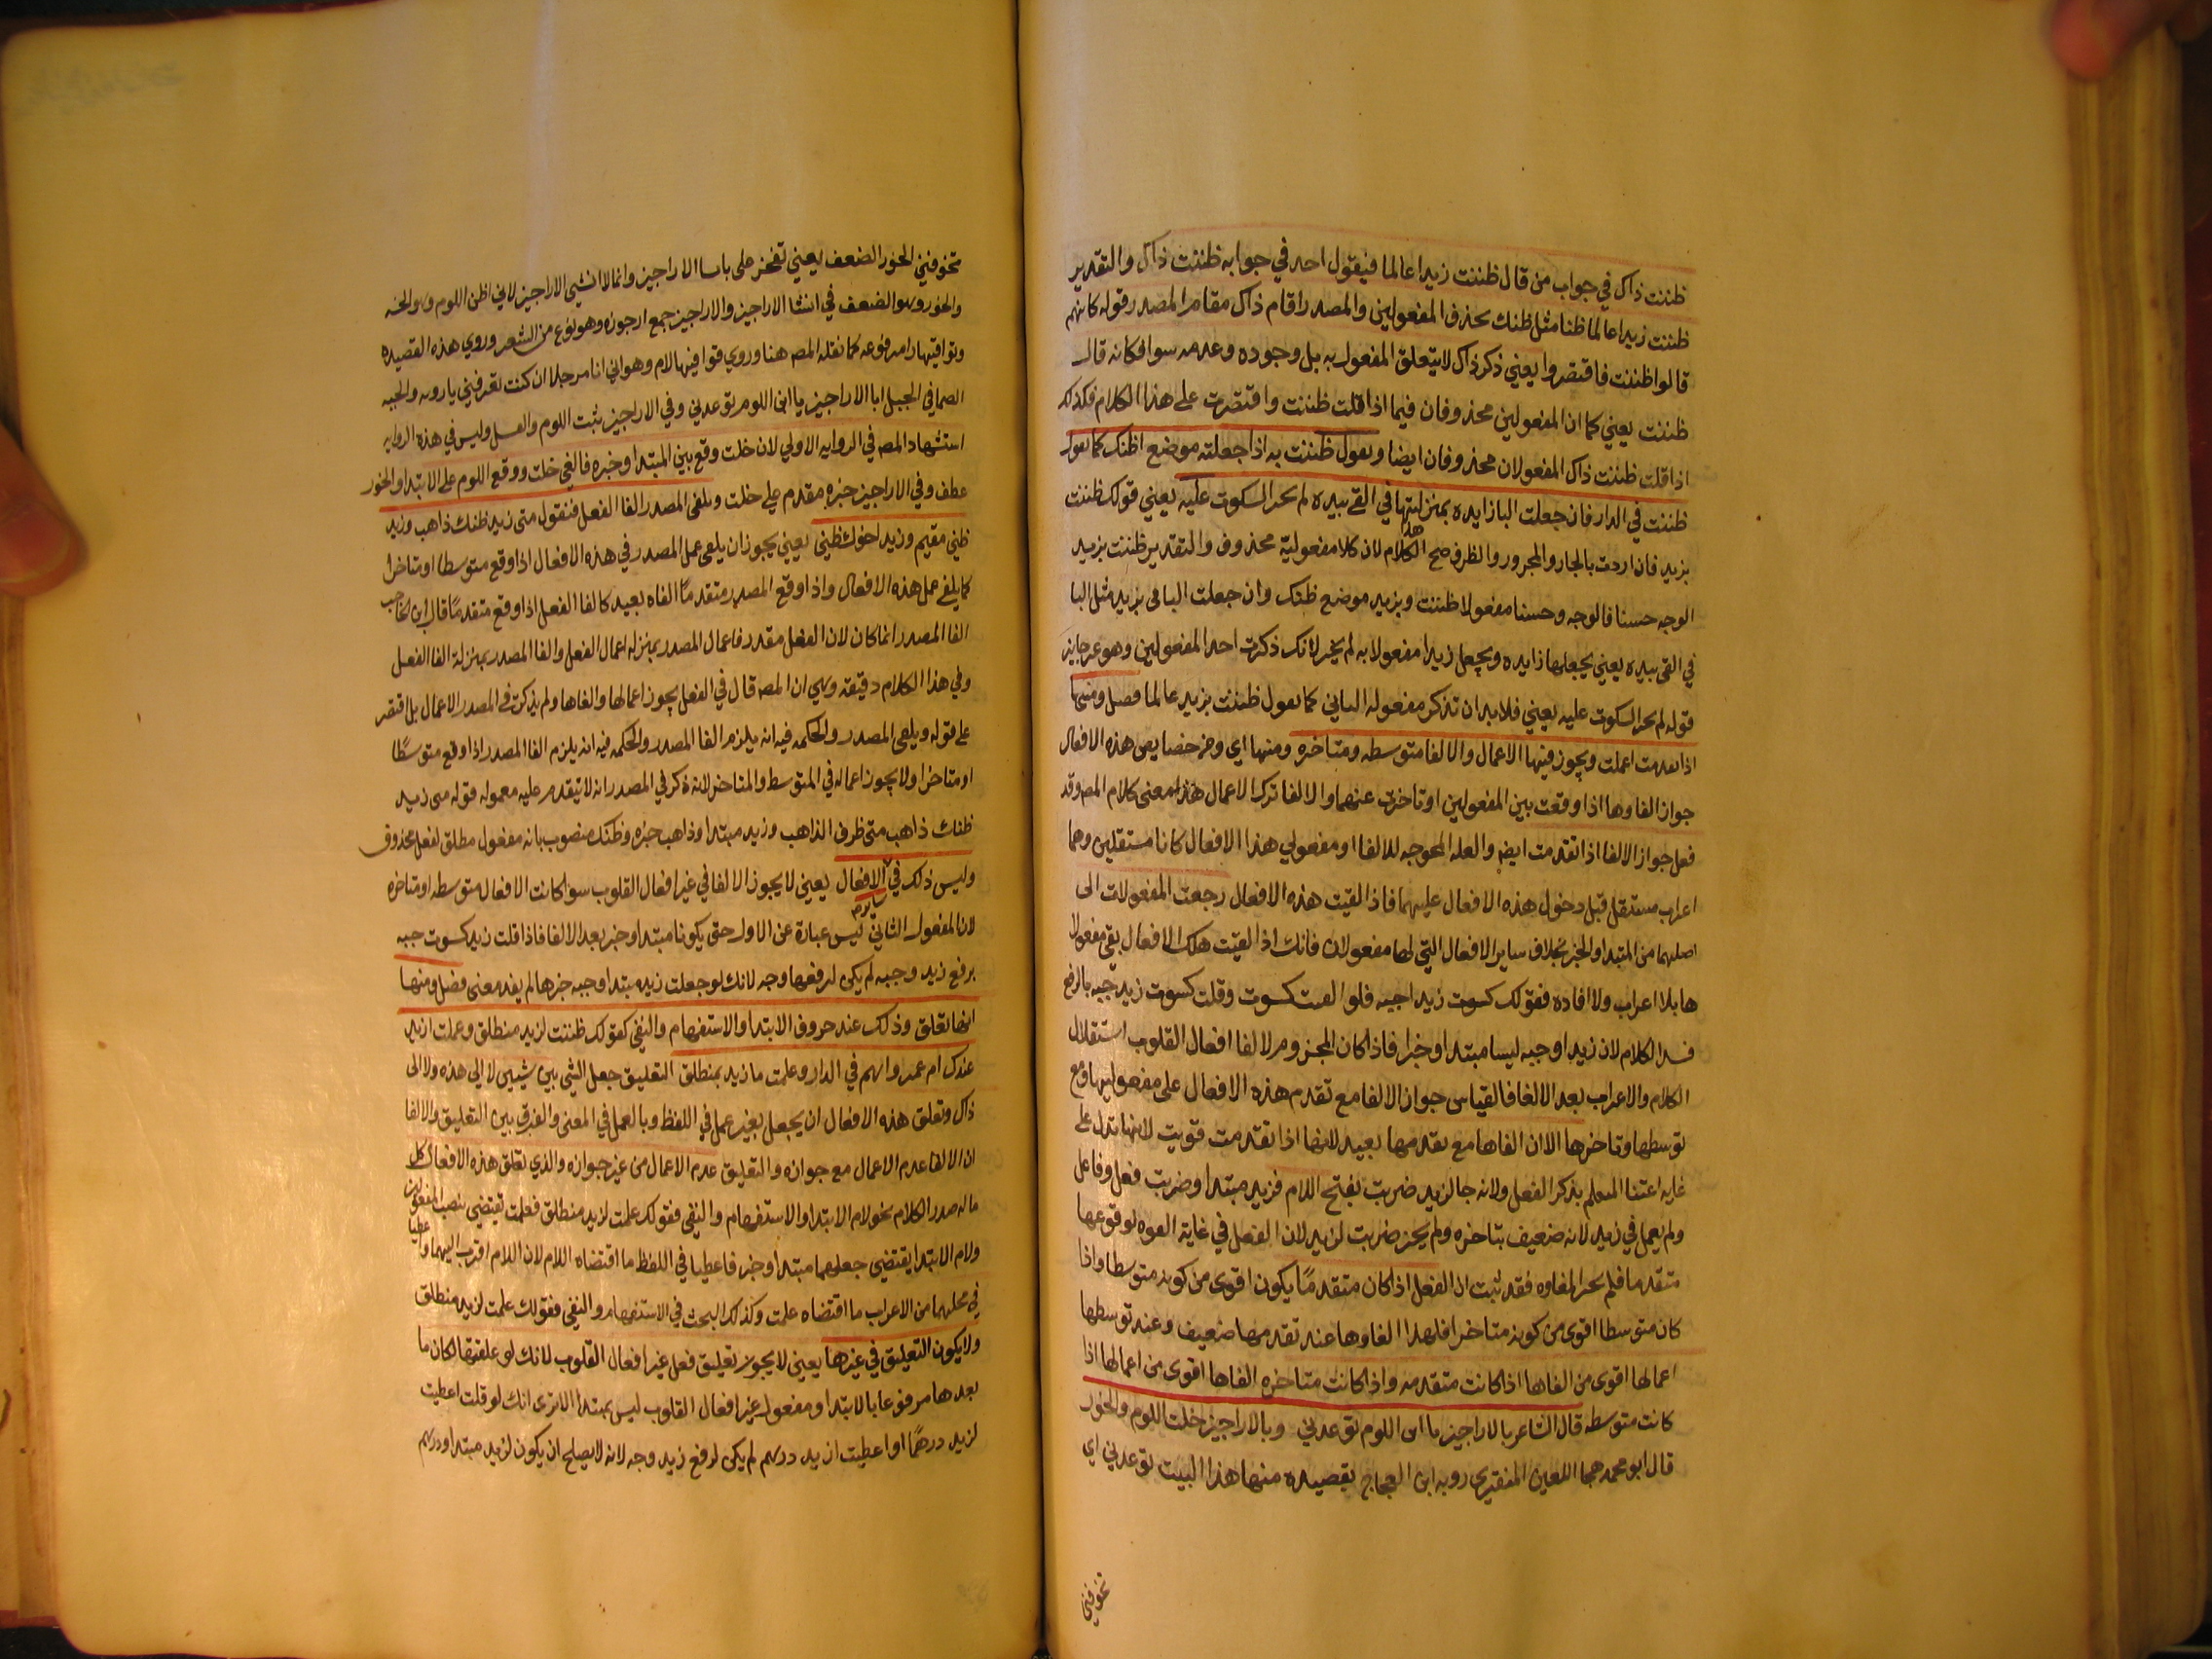 ظننت ذاك في جواب من قال ظننت زيدا عالما فيقول احد في جوابه ظننت ذاك والتقدير
ظننت زيدا عالما ظنا مثل ظنك بحذف المفعولين والمصدر اقام ذاك مقام المصدر وقوله كانهم
قالوا ظننت فاقتصروا يعني ذكر ذاك لا يتعلق المفعول به بل وجوده وعدمه سوا فكانه قال
ظننت يعني كما ان المفعولين محذوفان فيما اذا قلت ظننت واقتصرت على هذا الكلام فكذلك
اذا قلت ظننت ذاك المفعولان محذوفان ايضا وىقول ظننت به اذا جعلته موضع اظنك كما ىقول
ظننت في الدار فان جعلت البا زايده بمنزلتها في القى بيده لم يجز السكوت عليه يعني قولك ظننت
بزيد فان اردت بالجار والمجرور والظرف صح هذا الكلام لان كلا مفعوليه محذوف والتقدير ظننت بزيد
الوجه حسنا فالوجه وحسنا مفعولا ظننت وبزيد موضع ظنك وان جعلت البا في بزيد مثل البا
في القى بيده يعني يجعلها زايده ويجعل زيدا مفعولا به لم يجز لانك ذكرت احد المفعولين وهو غير جايز
قوله لم يجز السكوت عليه يعني فلا بد ان تذكر مفعوله الثاني كما ىقول ظننت بزيد عالما فصل ومنها
اذا تقدمت اعملت ويجوز فيها الاعمال والالغا متوسطه ومتاخره ومنها اي ومن خصايص هذه الافعال
جواز الغاوها اذا وقعت بين المفعولين او تاخرت عنهما والالغا ترك الاعمال هذا معنى كلام المصـ وقد
فعل جواز الالغا اذا تقدمت ايضا والعله المحوجه للالغا او مفعولي هذا الافعال كانا مستقلين وهما
اعراب مستقل قبل دخول هذه الافعال عليهما فاذا الغيت هذه الافعال رجعت المفعولات الى
اصلهما من المبتدا والخبر بخلاف ساير الافعال التي لها مفعولان فانك اذا الغيت تلك الافعال بقي مفعولا
ها بلا اعراب ولا افاده فقولك كسوت زيدا جبه فلو الغيت كسوت وقلت كسوت زيد جبه بالرفع
فسد الكلام لان زيدا وجبه ليسا مبتدا وخبرا فاذا كان المجز وم لالغا افعال القلوب استقلال
الكلام والاعراب بعد الالغا فالقياس جواز الالغا مع تقدم هذه الافعال على مفعوليها ومع
توسطها وتاخرها الا ان الغاها مع تقدمها بعيد لانها اذا تقدمت قويت لانها تدل على
غايه اعتنا المتعلم بذكر الفعل ولانه جا لزيد ضربت بفتح اللام فزيد مبتدا وضربت فعل وفاعل
ولم يعمل في زيد لانه ضعيف بتاخره ولم يجز ضربت لزيد لان الفعل في غاية القوه لوقوعها
متقدما فلم يجز الغاوه فقد ثبت ان الفعل اذا كان متقدمًا يكون اقوى من كونه متوسطا واذا
كان متوسطا اقوى من كونه متاخرا فلهذا الغاوها عند تقدمها ضعيف وعند توسطها
اعمالها اقوى من الغاها اذا كانت متقدمه واذا كانت متاخره الغاها اقوى من اعمالها اذا
كانت متوسطه قال الشاعر بالاراجيز يا ابن اللوم توعدني وبالاراجيز خلت اللوم والخور
قال ابو محمد هجا اللعين المنقري روبه ابن العجاج بقصيده منها هذا البيت توعدني اي
تخوفني
تخوفني الخور الضعف يعني تفخر على باسا الاراجيز وانما لا انشي الاراجيز لاني اظن اللوم وهو الخـ
والخور وهو الضعف في انشا الاراجيز والاراجيز جمع ارجوزه وهو نوع من الشعر وروي هذه القصيده
وقوافيها رامرفوعه كما نقله المصـ هنا وروي قوافيها لام وهو اني انا مرجلا ان كنت تعرفني يا روبه والحيه
الصما في الجبل ابا الاراجيز يا ابن اللوم توعدني وفي الاراجيز بثت اللوم والفسل وليس في هذه الروايه
استشهاد المصـ في الروايه الاولي لان خلت وقع بين المبتدا وخبره فالغي خلت ووقع اللوم على الابتدا والخور
عطف وفي الاراجيز خبره مقدم على خلت ويلغى المصدر الغا الفعل فتقول متى زيد ظنك ذاهب وزيد
ظني مقيم وزيد اخوك ظني يعني يجوز ان يلغى عمل المصدر في هذه الافعال اذا وقع متوسطا او متاخرا
كما يلغى عمل هذه الافعال واذا وقع المصدر متقدمًا الغاه بعيد كالغا الفعل اذا وقع متقدمًا قال ابن الحاجب
الغا المصدر انما كان لان الفعل مقدر فاعمال المصدر بمنزلة اعمال الفعل والغا المصدر بمنزلة الغا الفعل
وفي هذا الكلام دقيقه وهي ان المصـ قال في الفعل يجوز اعمالها والغاها ولم يذكرت في المصدر الاعمال بل اقتصر
على قوله ويلغى المصدر والحكمه فيه انه يلزم الغا المصدر والحكمه فيه انه يلزم الغا المصدر اذا وقع متوسطًا
او متاخرا ولا يجوز اعماله في المتوسط والمتاخر لانه ذكر في المصدر انه لا يتقدم عليه معموله قوله متى زيد
ظنك ذاهب متى ظرف الذاهب وزيد مبتدا وذاهب خبره وظنك منصوب بانه مفعول مطلق لفعل محذوف
وليس ذلك في ساير الافعال يعني لا يجوز الالغا في غير افعال القلوب سوا كانت الافعال متوسطه او متاخره
لان المفعول الثاني ليس عبارة عن الاول حتى يكونا مبتدا وخبر بعد الالغا فاذا قلت زيد كسوت جبه
برفع زيد وجبه لم يكن لرفعها وجه لانك لو جعلت زيد مبتدا وجبه خبرها لم يفد معنى فصل ومنها
انها تعلق وذلك عند حروف الابتدا والاستفهام والنفي كقولك ظننت لزيد منطلق وعلمت ازيد
عندك ام عمرو وايهم في الدار وعلمت ما زيد بمنطلق التعليق جعل الشي بين شيين لا الى هذه ولا الى
ذاك وتعلق هذه الافعال ان يجعل بغير عمل في اللفظ وبالعمل في المعنى والفرق بين التعليق والالغا
ان الالغا عدم الاعمال مع جوازه والتعليق عدم الاعمال من غير جوازه والذي تعلق هذه الافعال كل
ما له صدر الكلام نحو لام الابتدا والاستفهام والنفي فقولك علمت لزيد منطلق فعلمت تقتضي نصب المفعولين
ولام الابتدا يقتضي جعلهما مبتدا وخبر فاعطيا في اللفظ ما اقتضاه اللام لان اللام اقرب اليهما واعطيا
في محلهما من الاعراب ما اقتضاه علمت وكذلك البحث في الاستفهام والنفي فقولك علمت لزيد منطلق
ولا يكون التعليق في غيرها يعني لا يجوز تعليق فعل غير افعال القلوب لانك لو علقتها لكان ما
بعدها مرفوعا بالابتدا ومفعول غير افعال القلوب ليس بمبتدا الا ترى انك لو قلت اعطيت
لزيد درهمًا او اعطيت ازيد درهم لم يكن لرفع زيد وجه لانه لا يصلح ان يكون لزيد مبتدا ودرهم